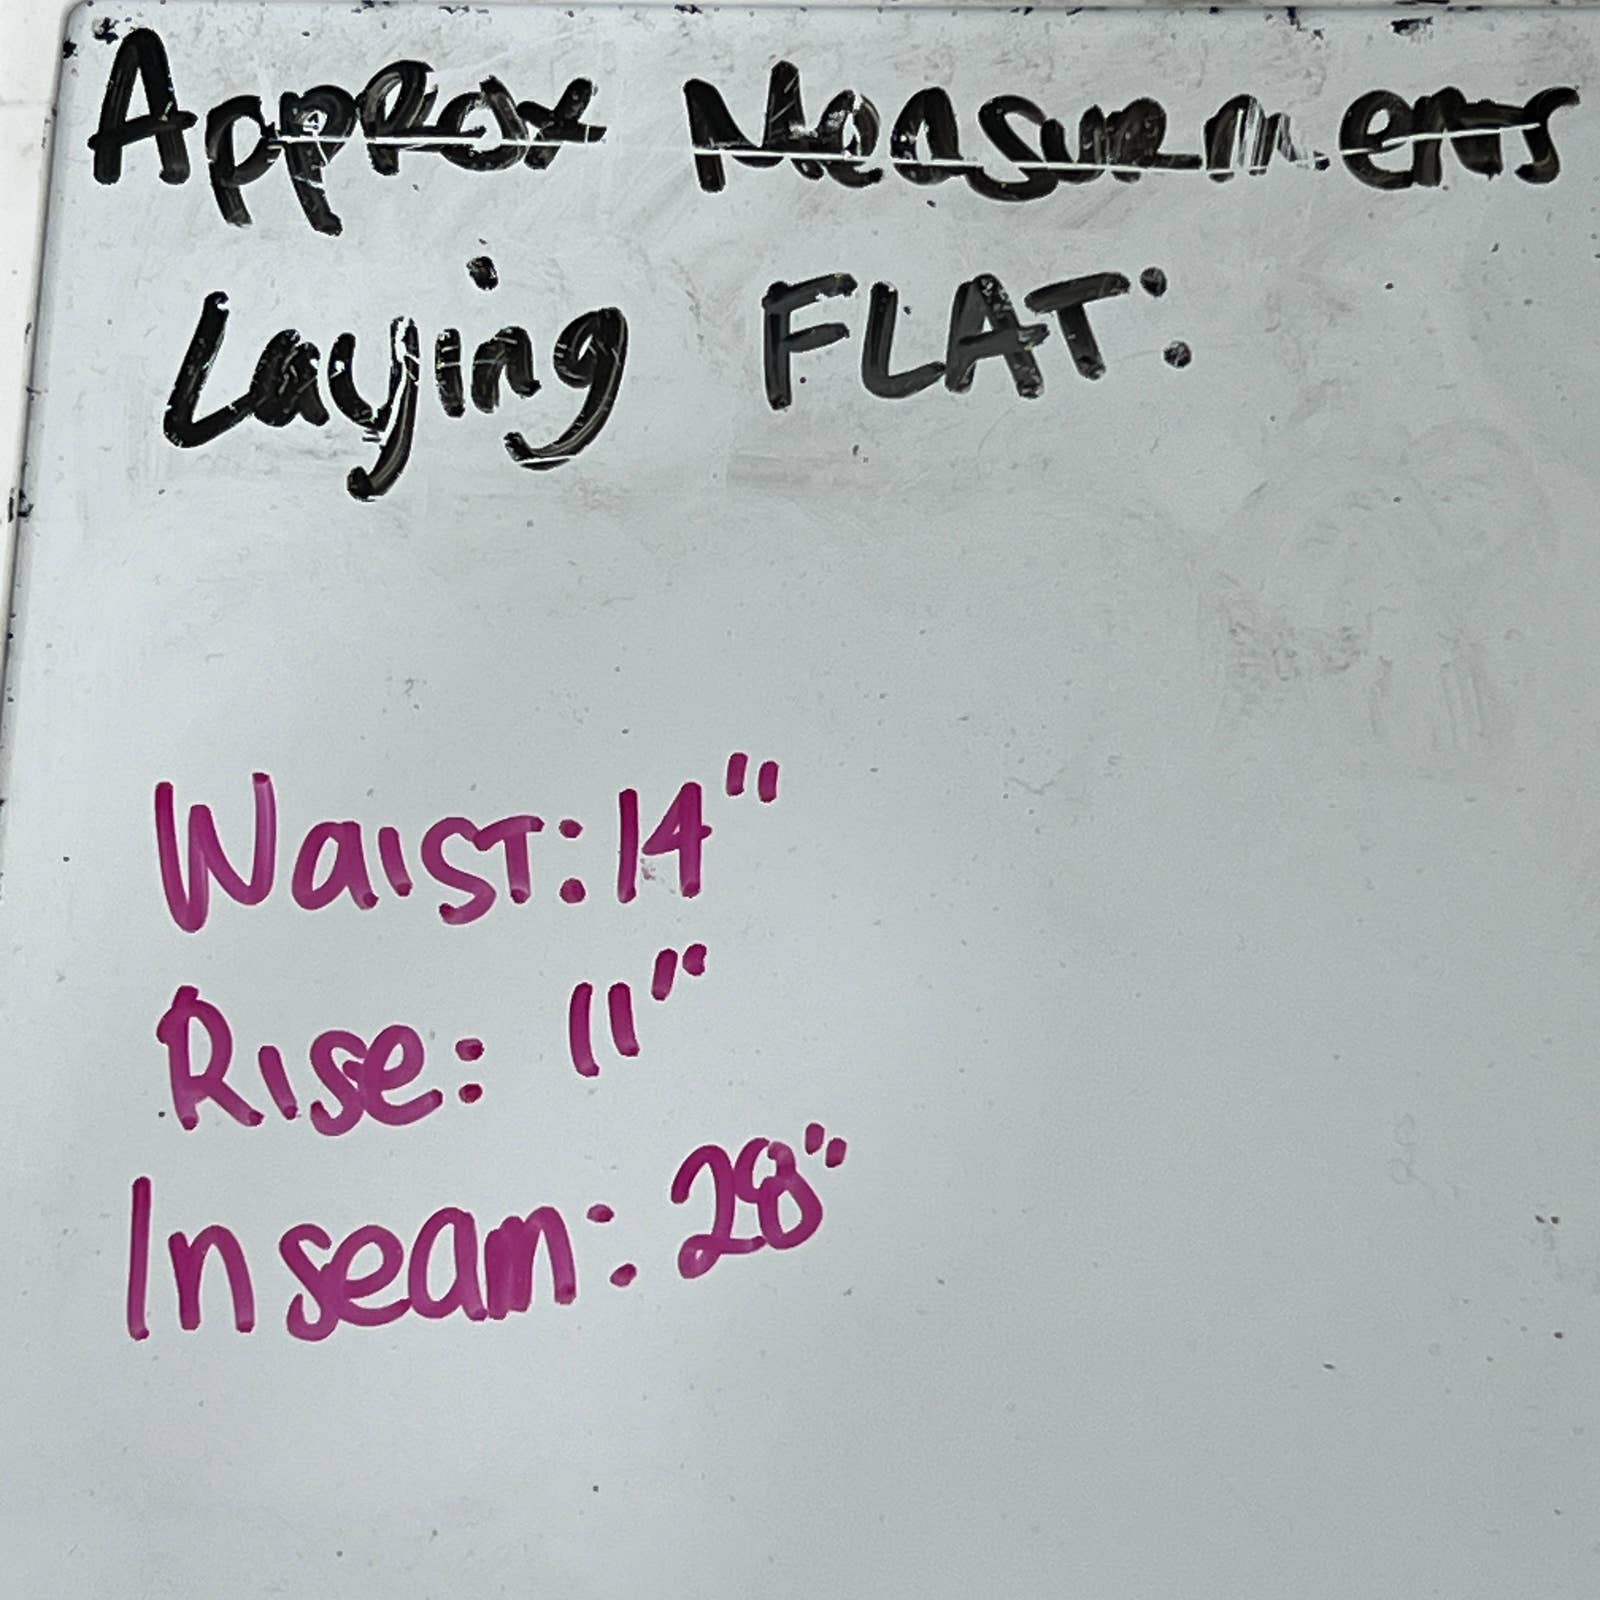 Approx Measurments
Laying FLAT:
Waist: 14"
Rise: 11"
Inseam: 28"